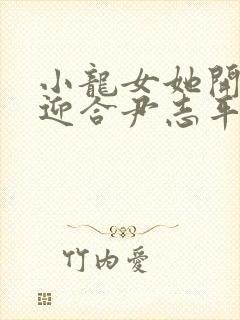 小龍女她開
迎合尹志平
竹内愛